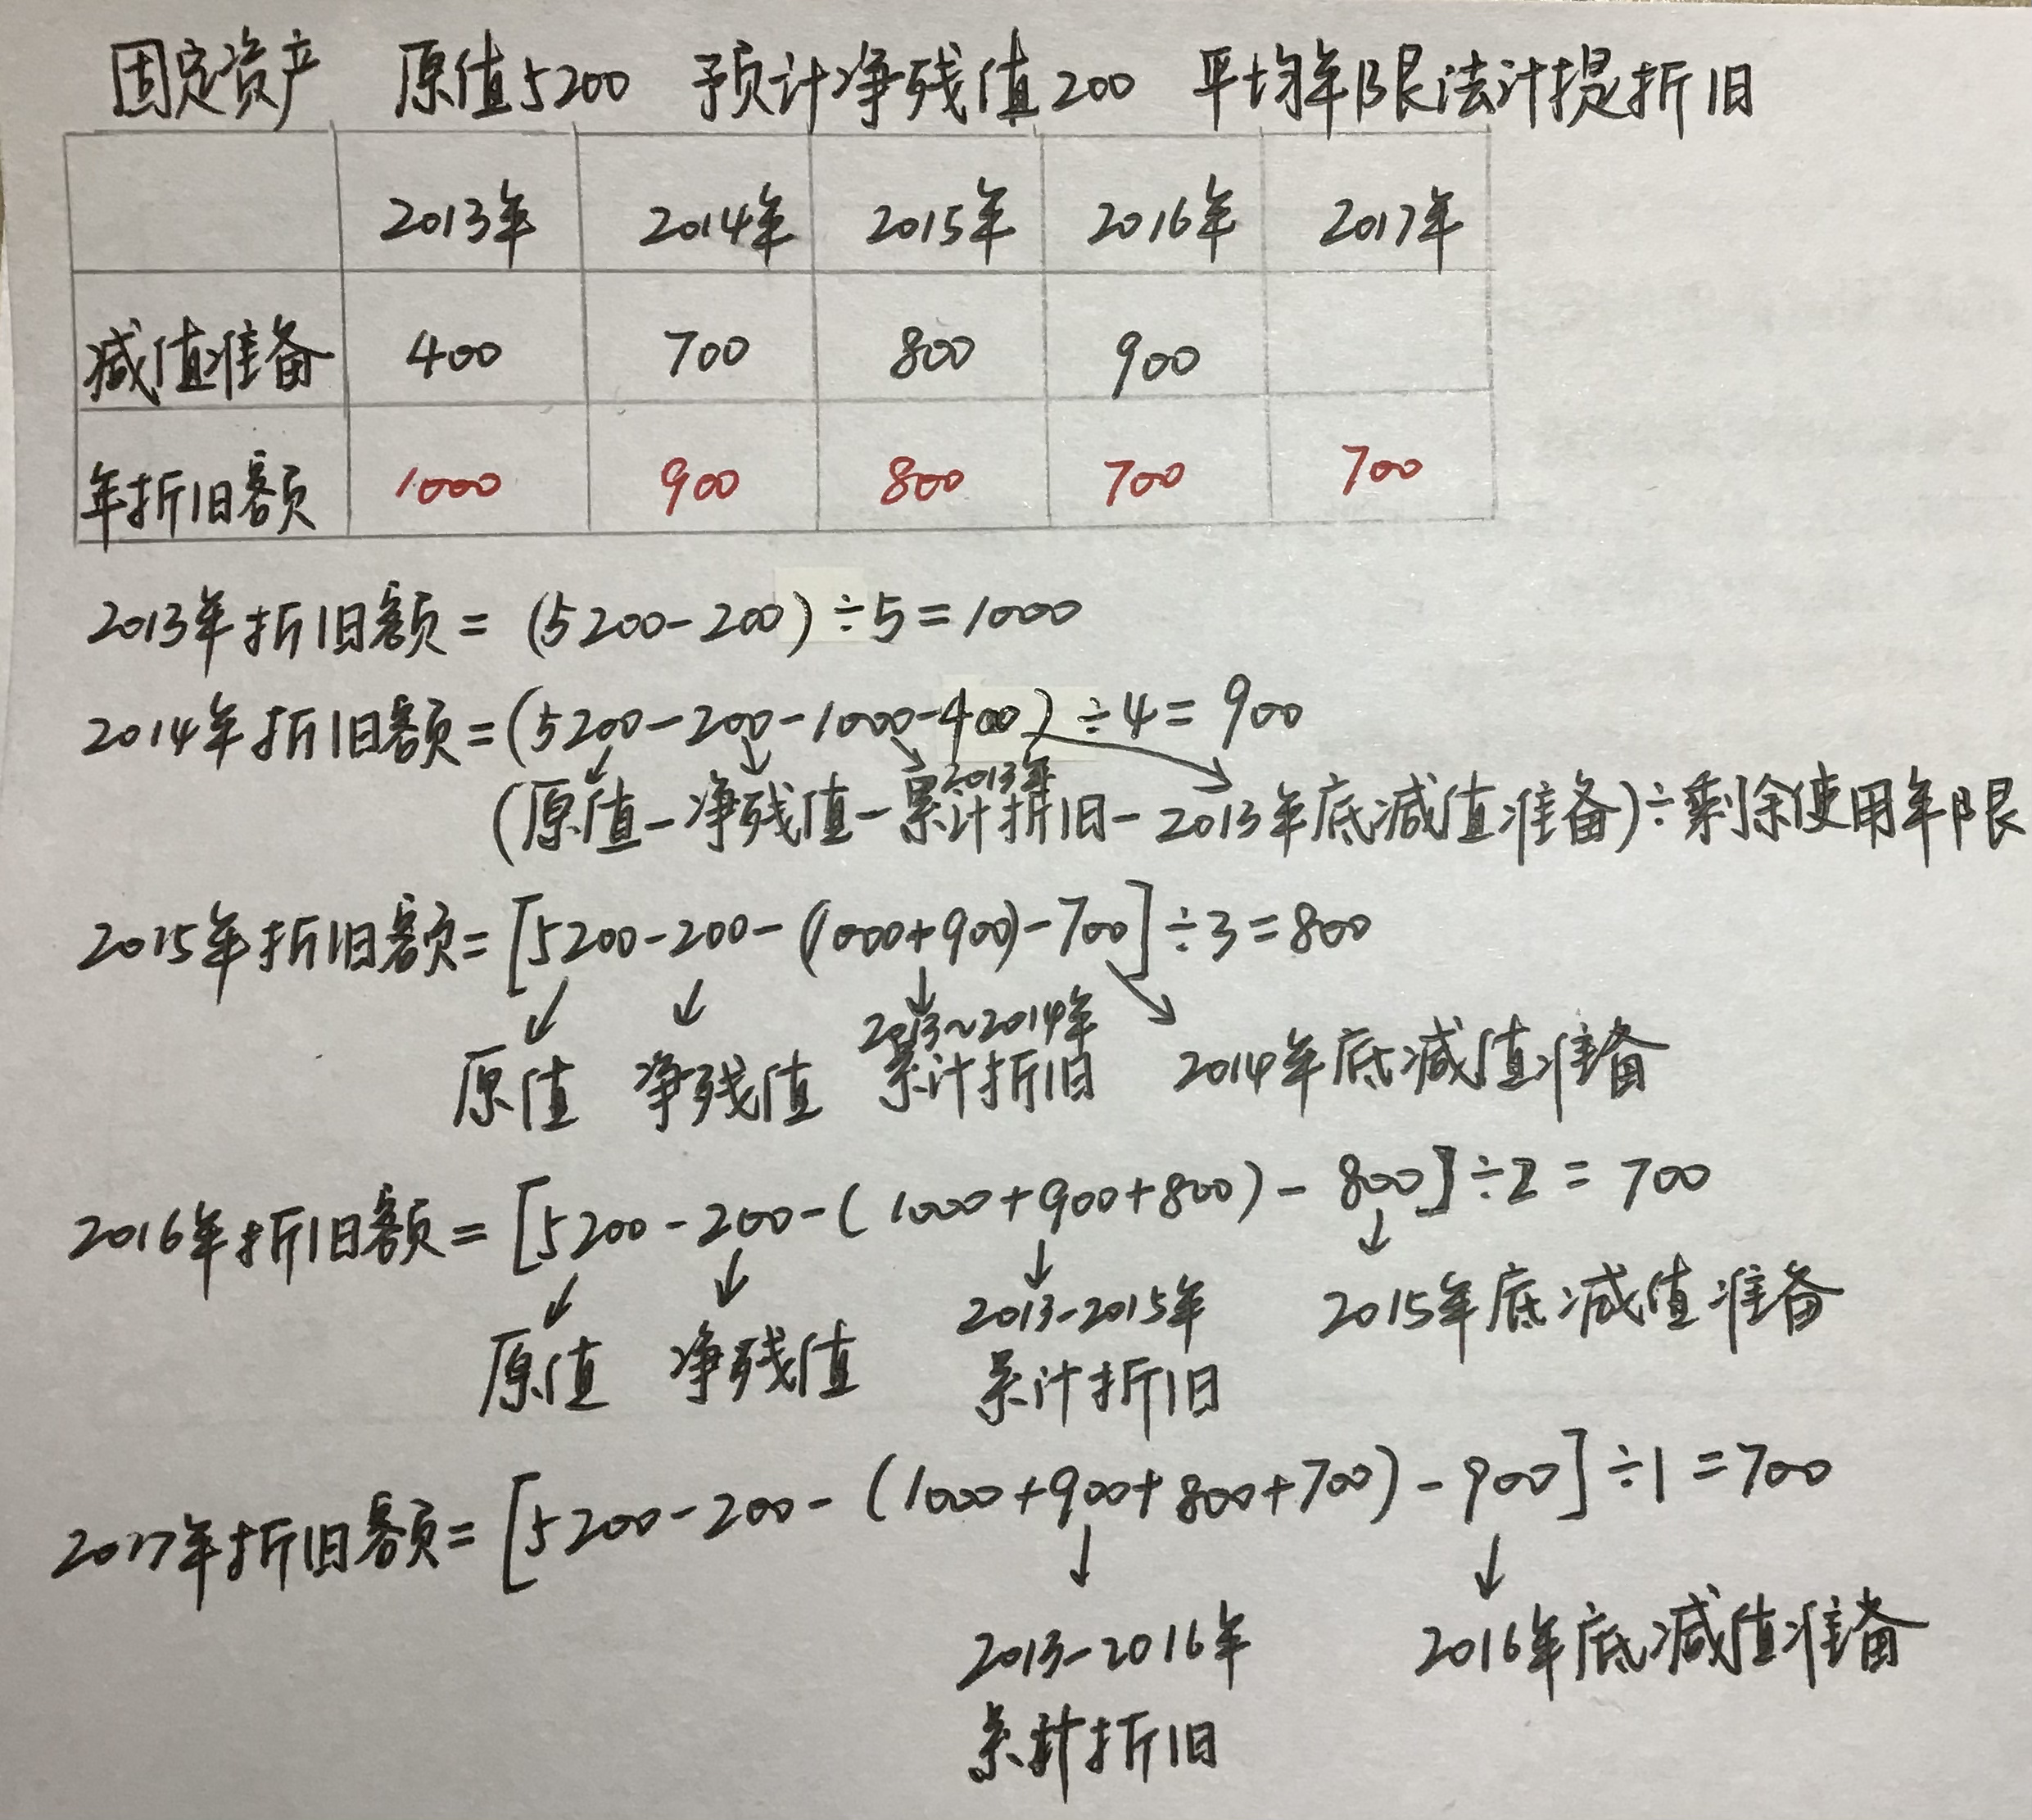 固定资产 原值5200 预计净残值200 平均年限法计提折旧
2013年 2014年 2015年 2016年 2017年
减值准备 400 700 800 900
年折旧额 1000 900 800 700 700
2013年折旧额=(5200-200)÷5=1000
2014年折旧额=(5200-200-1000-400)÷4=900
2013年
(原值-净残值-累计折旧-2013年底减值准备)÷剩余使用年限
2015年折旧额=[5200-200-(1000+900)-700]÷3=800
2013~2014年
原值 净残值 累计折旧 2014年底减值准备
2016年折旧额=[5200-200-(1000+900+800)-800]÷2=700
2013-2015年 2015年底减值准备
原值 净残值 累计折旧
2017年折旧额=[5200-200-(1000+900+800+700)-900]÷1=700
2013-2016年 2016年底减值准备
累计折旧